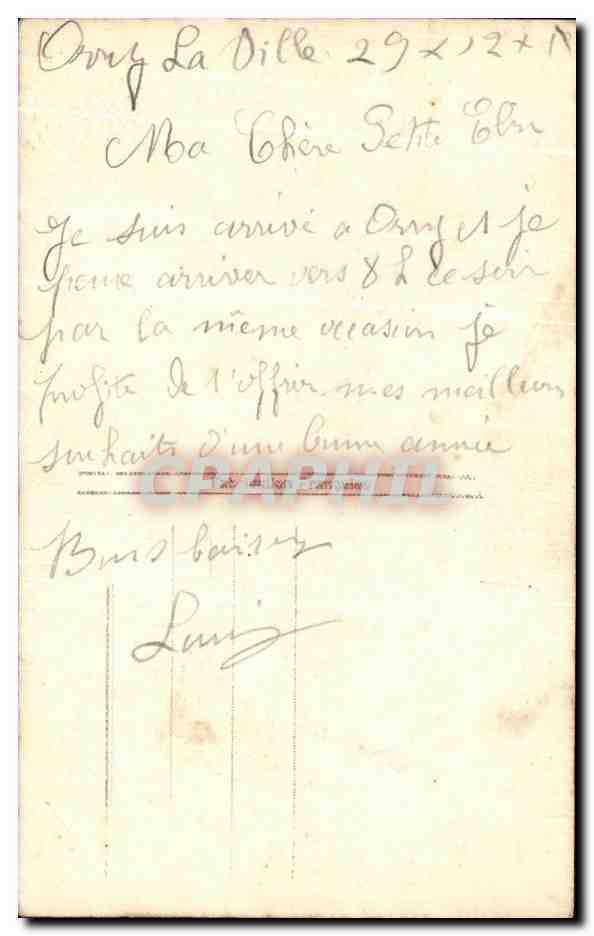 Orry La Ville 29 x 12 x
Ma Chère Petite
Je suis arrivé a Orry et je
pense arriver vers 8 h ce soir
par la même occasion je
profite de t'offrir mes meilleurs
souhaits d'une bonne année
CPAPHIL
Bons baisers
Louis